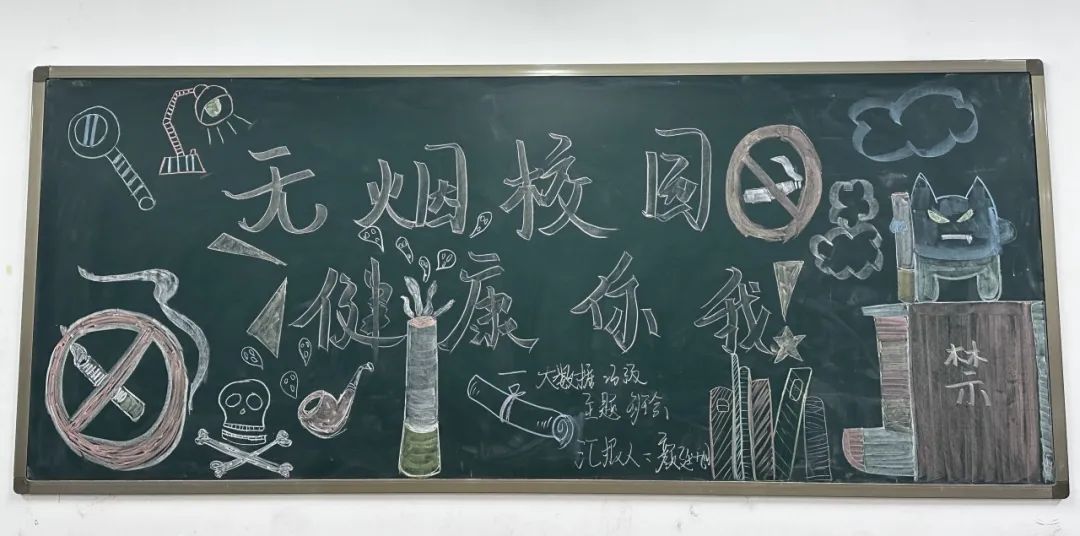 无烟校园
健康你我!
大数据 班级
主题 班会
汇报人:
禁